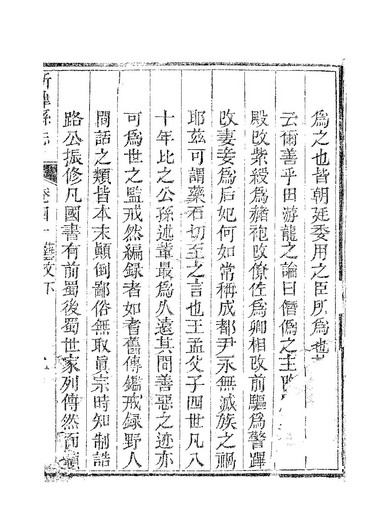 為之也皆朝廷委用之臣所為也
云爾善乎田游龍之論曰僭僞之主改
殿改紫綬為赭袍改僚佐為卿相改前驅為警蹕
改妻妾為后妃何如常稱成都尹永無滅族之禍
耶玆可謂藥石切至之言也王孟父子四世凡八
十年比之公孫述輩最為久遠其間善惡之迹亦
可為世之監戒然編録者如耆舊傳鑑戒録野人
閒話之類皆本末顛倒鄙俗無取眞宗時知制誥
路公振修凡國書有前蜀後蜀世家列傳然而
縣志
卷四十 藝文下